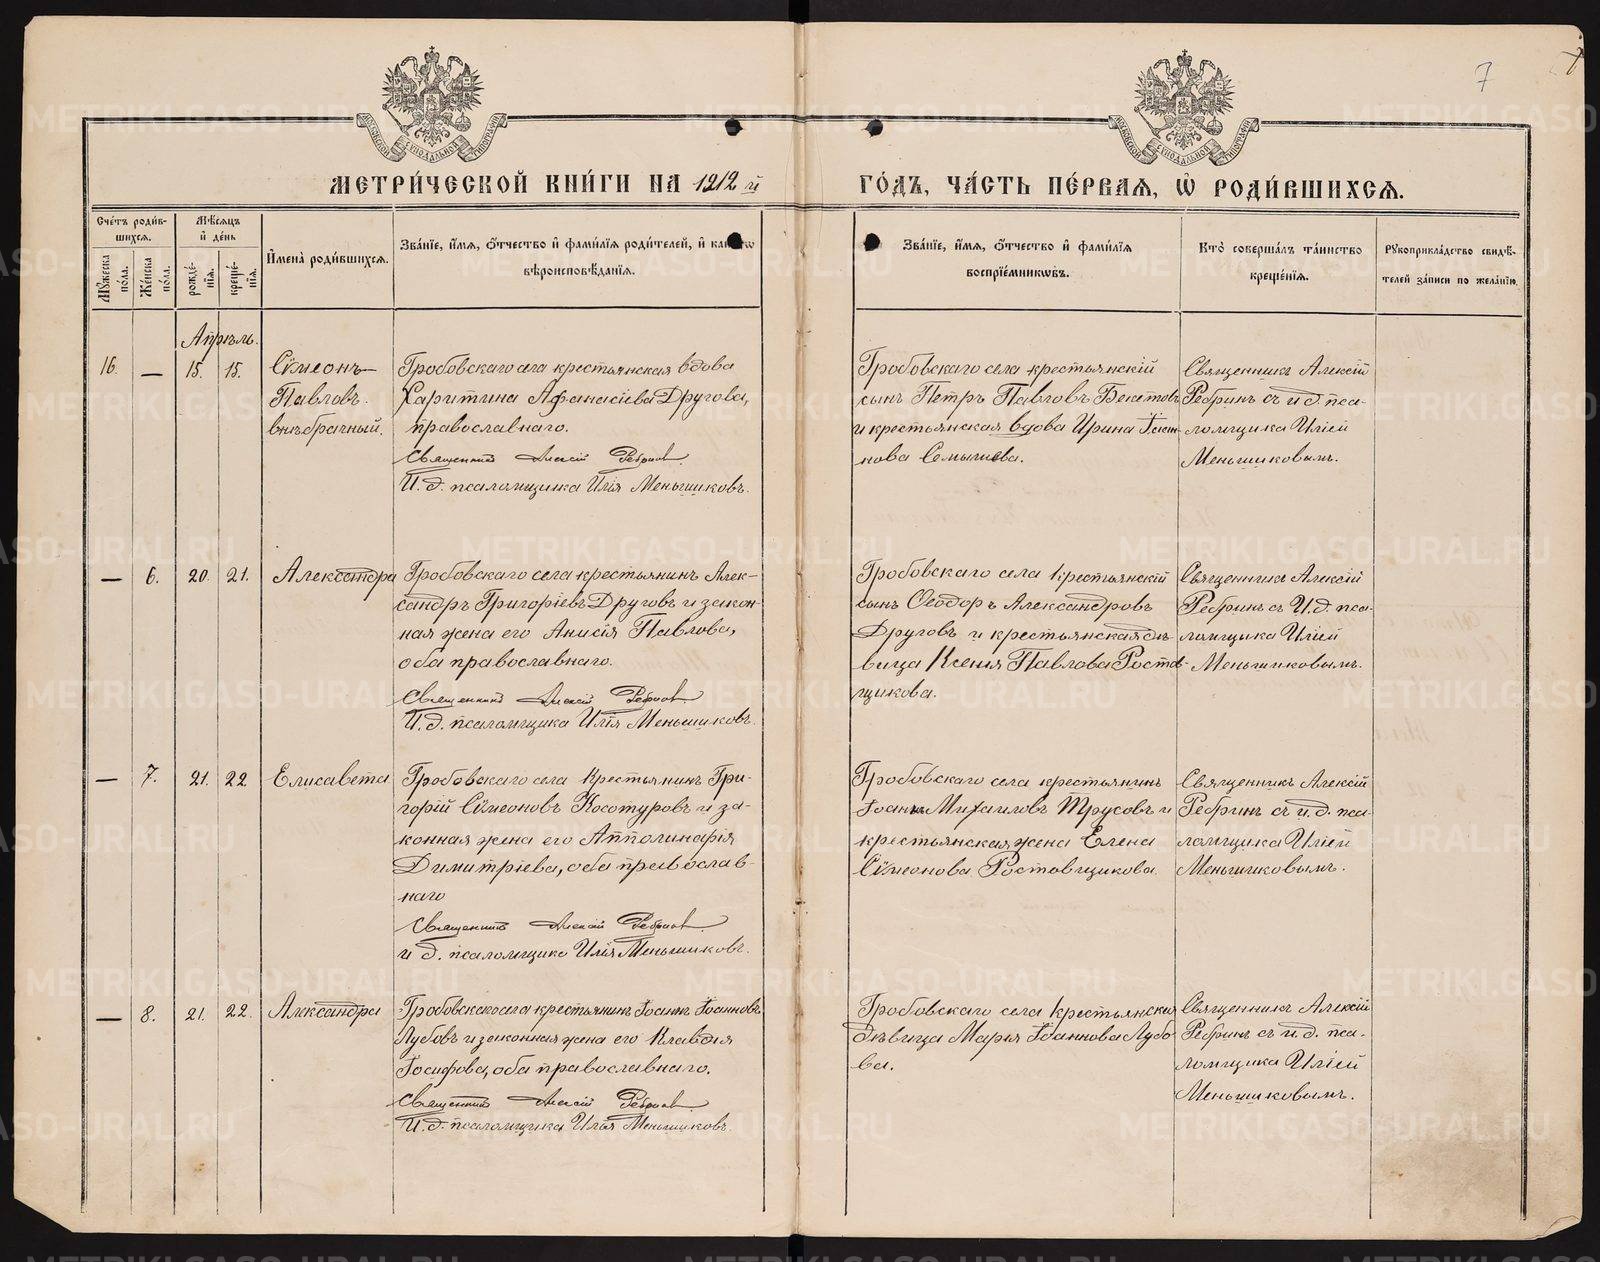 7
МЕТРИ́ЧЕСКОЙ КНИ́ГИ НА 1912 й
ГО́ДЪ, ЧА́СТЬ ПЕ́РВАЯ, Ѡ РОДИ́ВШИХСЯ.
Сче́тъ роди́в-
шихся.
Му́жеска по́ла.
Же́нска по́ла.
Мѣ́сяцъ
и҆ де́нь
рожде́-
нїя.
креще́-
нїя.
И҆мена̀ роди́вшихся.
Зва́нїе, и҆́мя, ѻ҆́тчество и҆ фамилїя роди́телей, и҆
вѣроисповѣ́данїя.
Зва́нїе, и҆́мя, ѻ҆́тчество и҆ фами́лїя
воспрїе́мникѡвъ.
Кто̀ соверша́лъ та́инство
креще́нїя.
Рꙋкоприкла́дство свидѣ́-
телей за́писи по жела́нїю.
Апрѣль.
16. — 15. 15.
Сѵмеонъ
Павловъ.
внѣбрачный.
Гробовскаго села крестьянская вдова
Харитина Афанасіева Другова,
православнаго.
Священникъ Алексій Ребринъ
И. д. псаломщика Илія Меньшиковъ.
Гробовскаго села крестьянскій
сынъ Петръ Павловъ Бекетовъ
и крестьянская вдова Ирина
нова
Священникъ Алексій
Ребринъ съ и. д. пса-
ломщика Иліей
Меньшиковымъ.
— 6. 20. 21.
Александра
Гробовскаго села крестьянинъ Алек-
сандръ Григоріевъ Друговъ и закон-
ная жена его Анисія Павлова,
оба православнаго.
Священникъ Алексій Ребринъ
И. д. псаломщика Илія Меньшиковъ.
Гробовскаго села крестьянскій
сынъ Ѳеодоръ Александровъ
Друговъ и крестьянская дѣ-
вица Ксенія Павлова Ростов-
щикова.
Священникъ Алексій
Ребринъ съ И. д. пса-
ломщика Иліей
Меньшиковымъ.
— 7. 21. 22.
Елисавета
Гробовскаго села крестьянинъ Гри-
горій Сѵмеоновъ Косотуровъ и за-
конная жена его Апполинарія
Димитріева, оба православ-
наго
Священникъ Алексій Ребринъ
и д. псаломщика Илія Меньшиковъ.
Гробовскаго села крестьянинъ
Іоаннъ Михаиловъ Трусовъ и
крестьянская жена Елена
Сѵмеонова Ростовщикова.
Священникъ Алексій
Ребринъ съ и. д. пса-
ломщика Иліей
Меньшиковымъ.
— 8. 21. 22.
Александра
Гробовскаго села крестьянинъ Іоаннъ Іоанновъ
Лубовъ и законная жена его Клавдія
Іосифова, оба православнаго.
Священникъ Алексій Ребринъ
И. д. псаломщика Илія Меньшиковъ.
Гробовскаго села крестьянская
дѣвица Марія Іоаннова Лубо-
ва.
Священникъ Алексій
Ребринъ съ и. д. пса-
ломщика Иліей
Меньшиковымъ.
METRIKI.GASO-URAL.RU